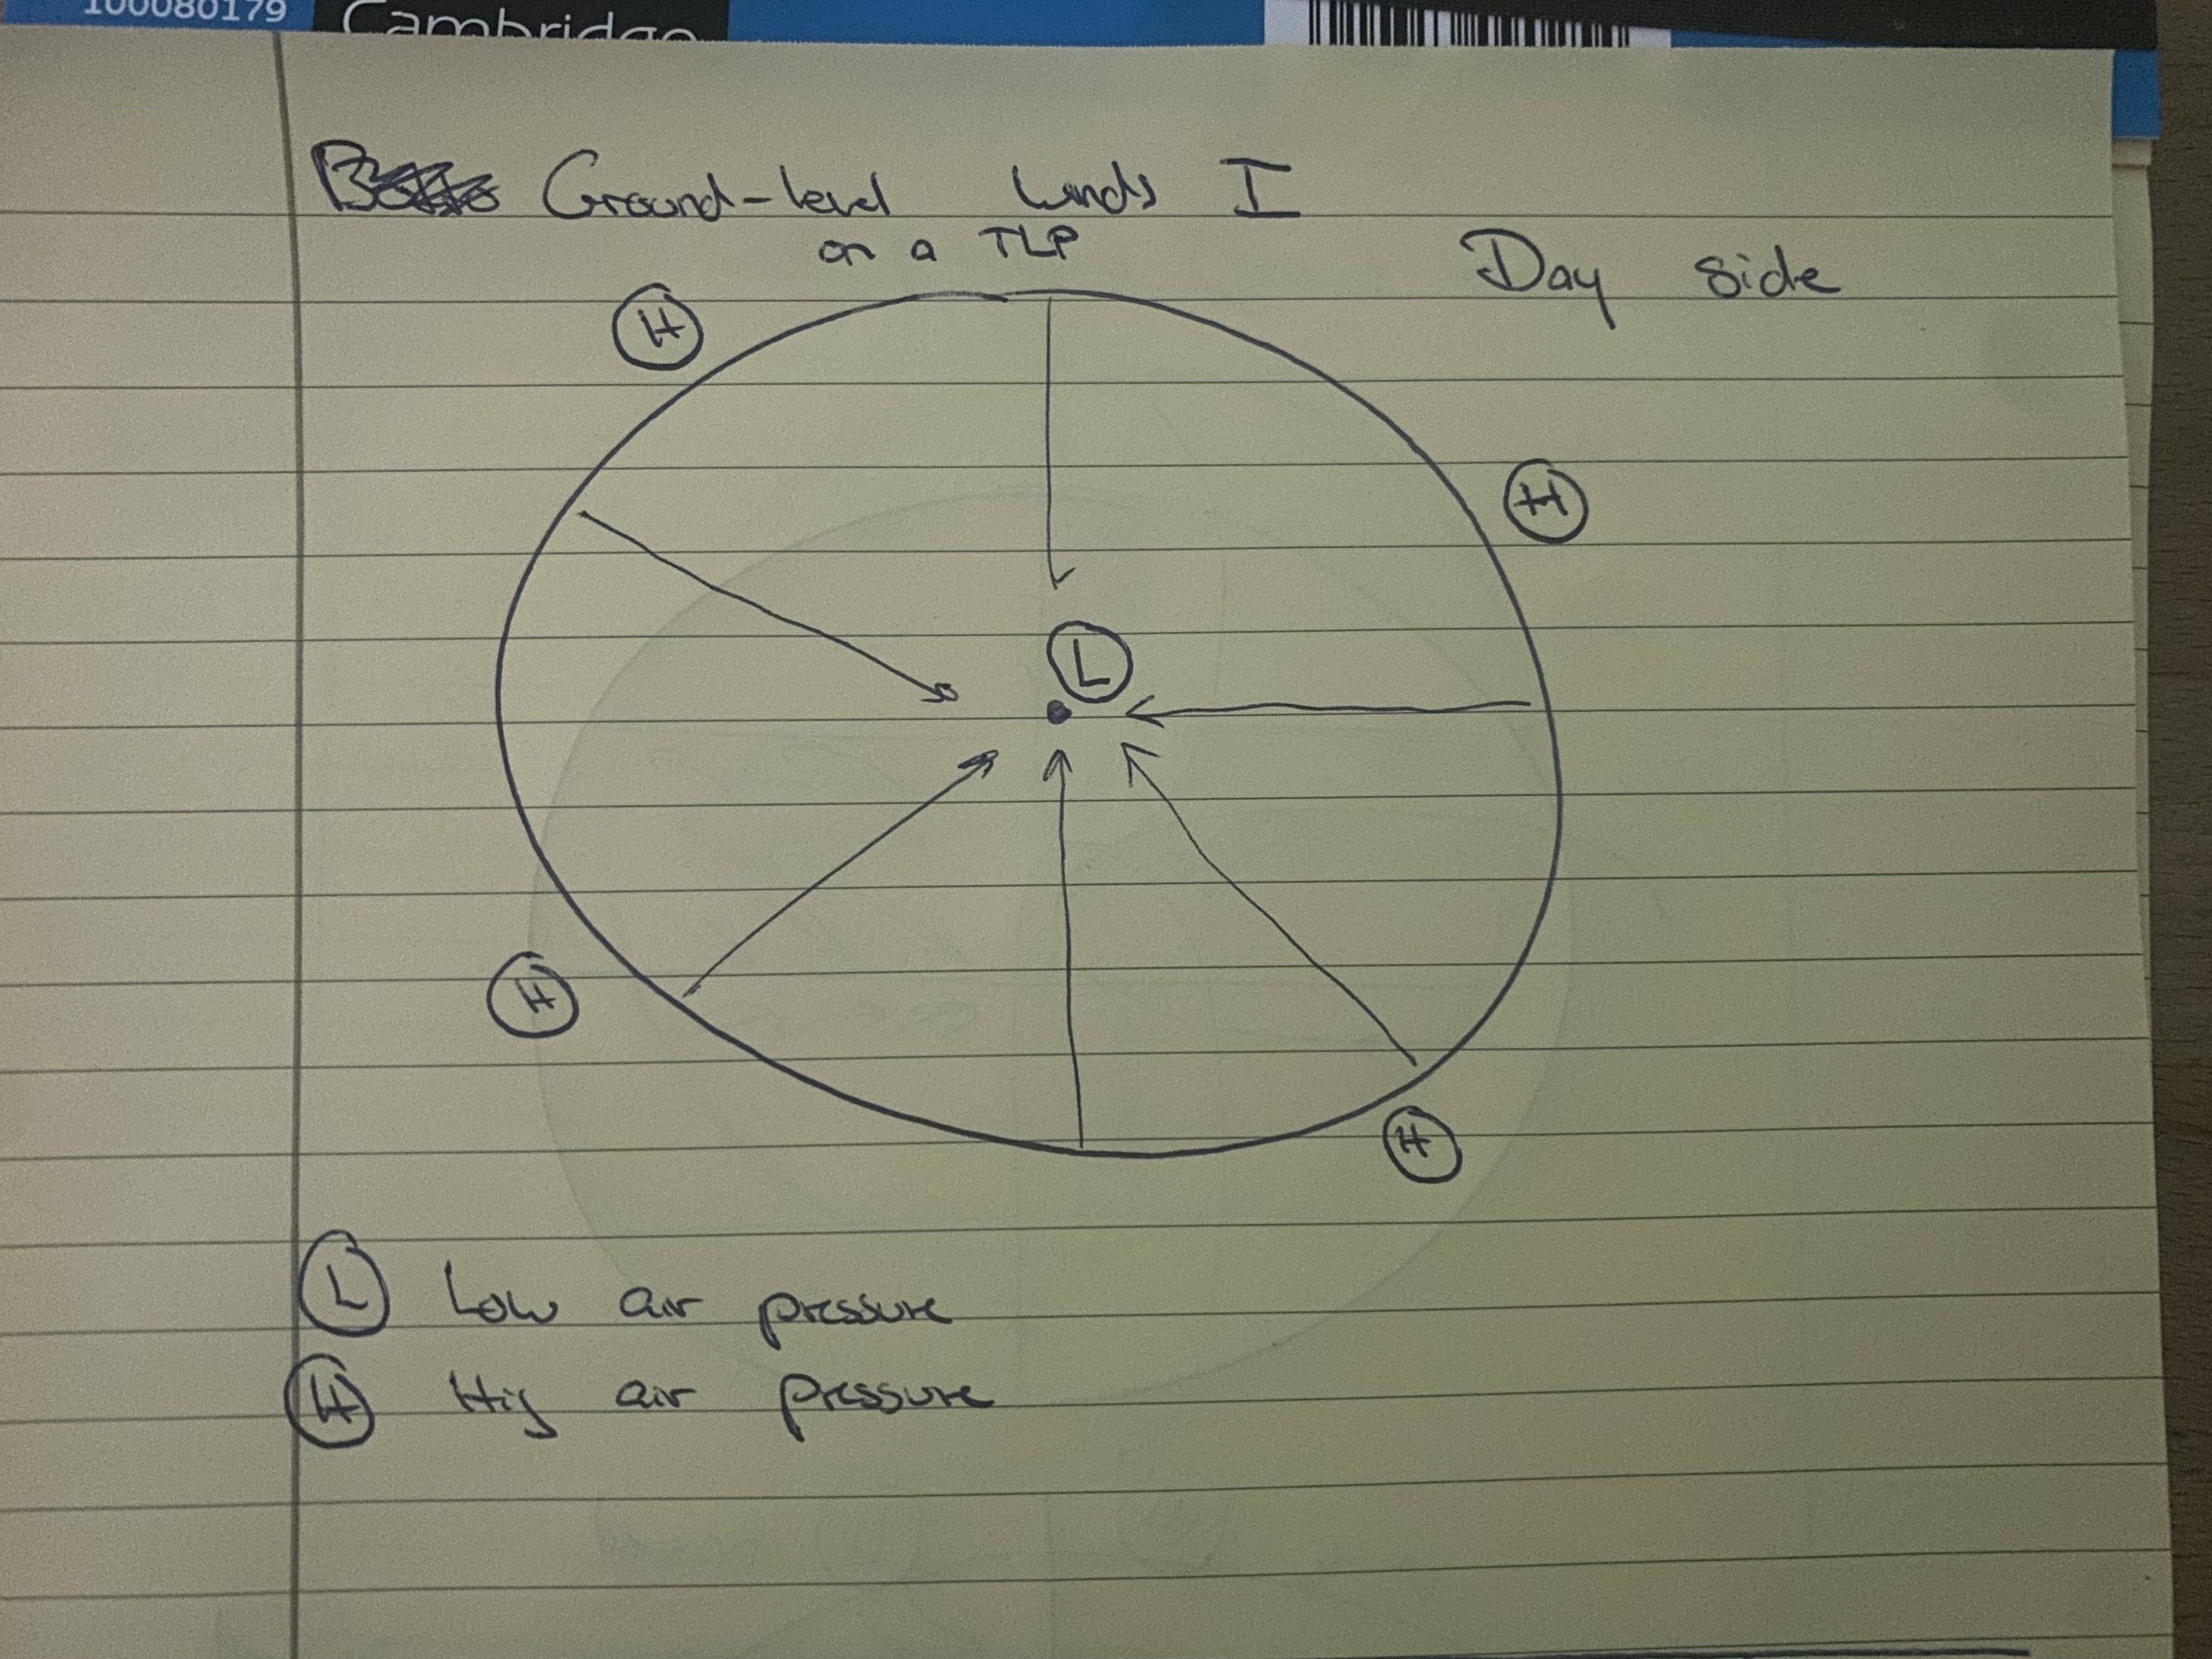 100080179 Cambridge
Ground-level winds I
on a TLP
Day side
H
H
L
H
H
L Low air pressure
H Hig air pressure